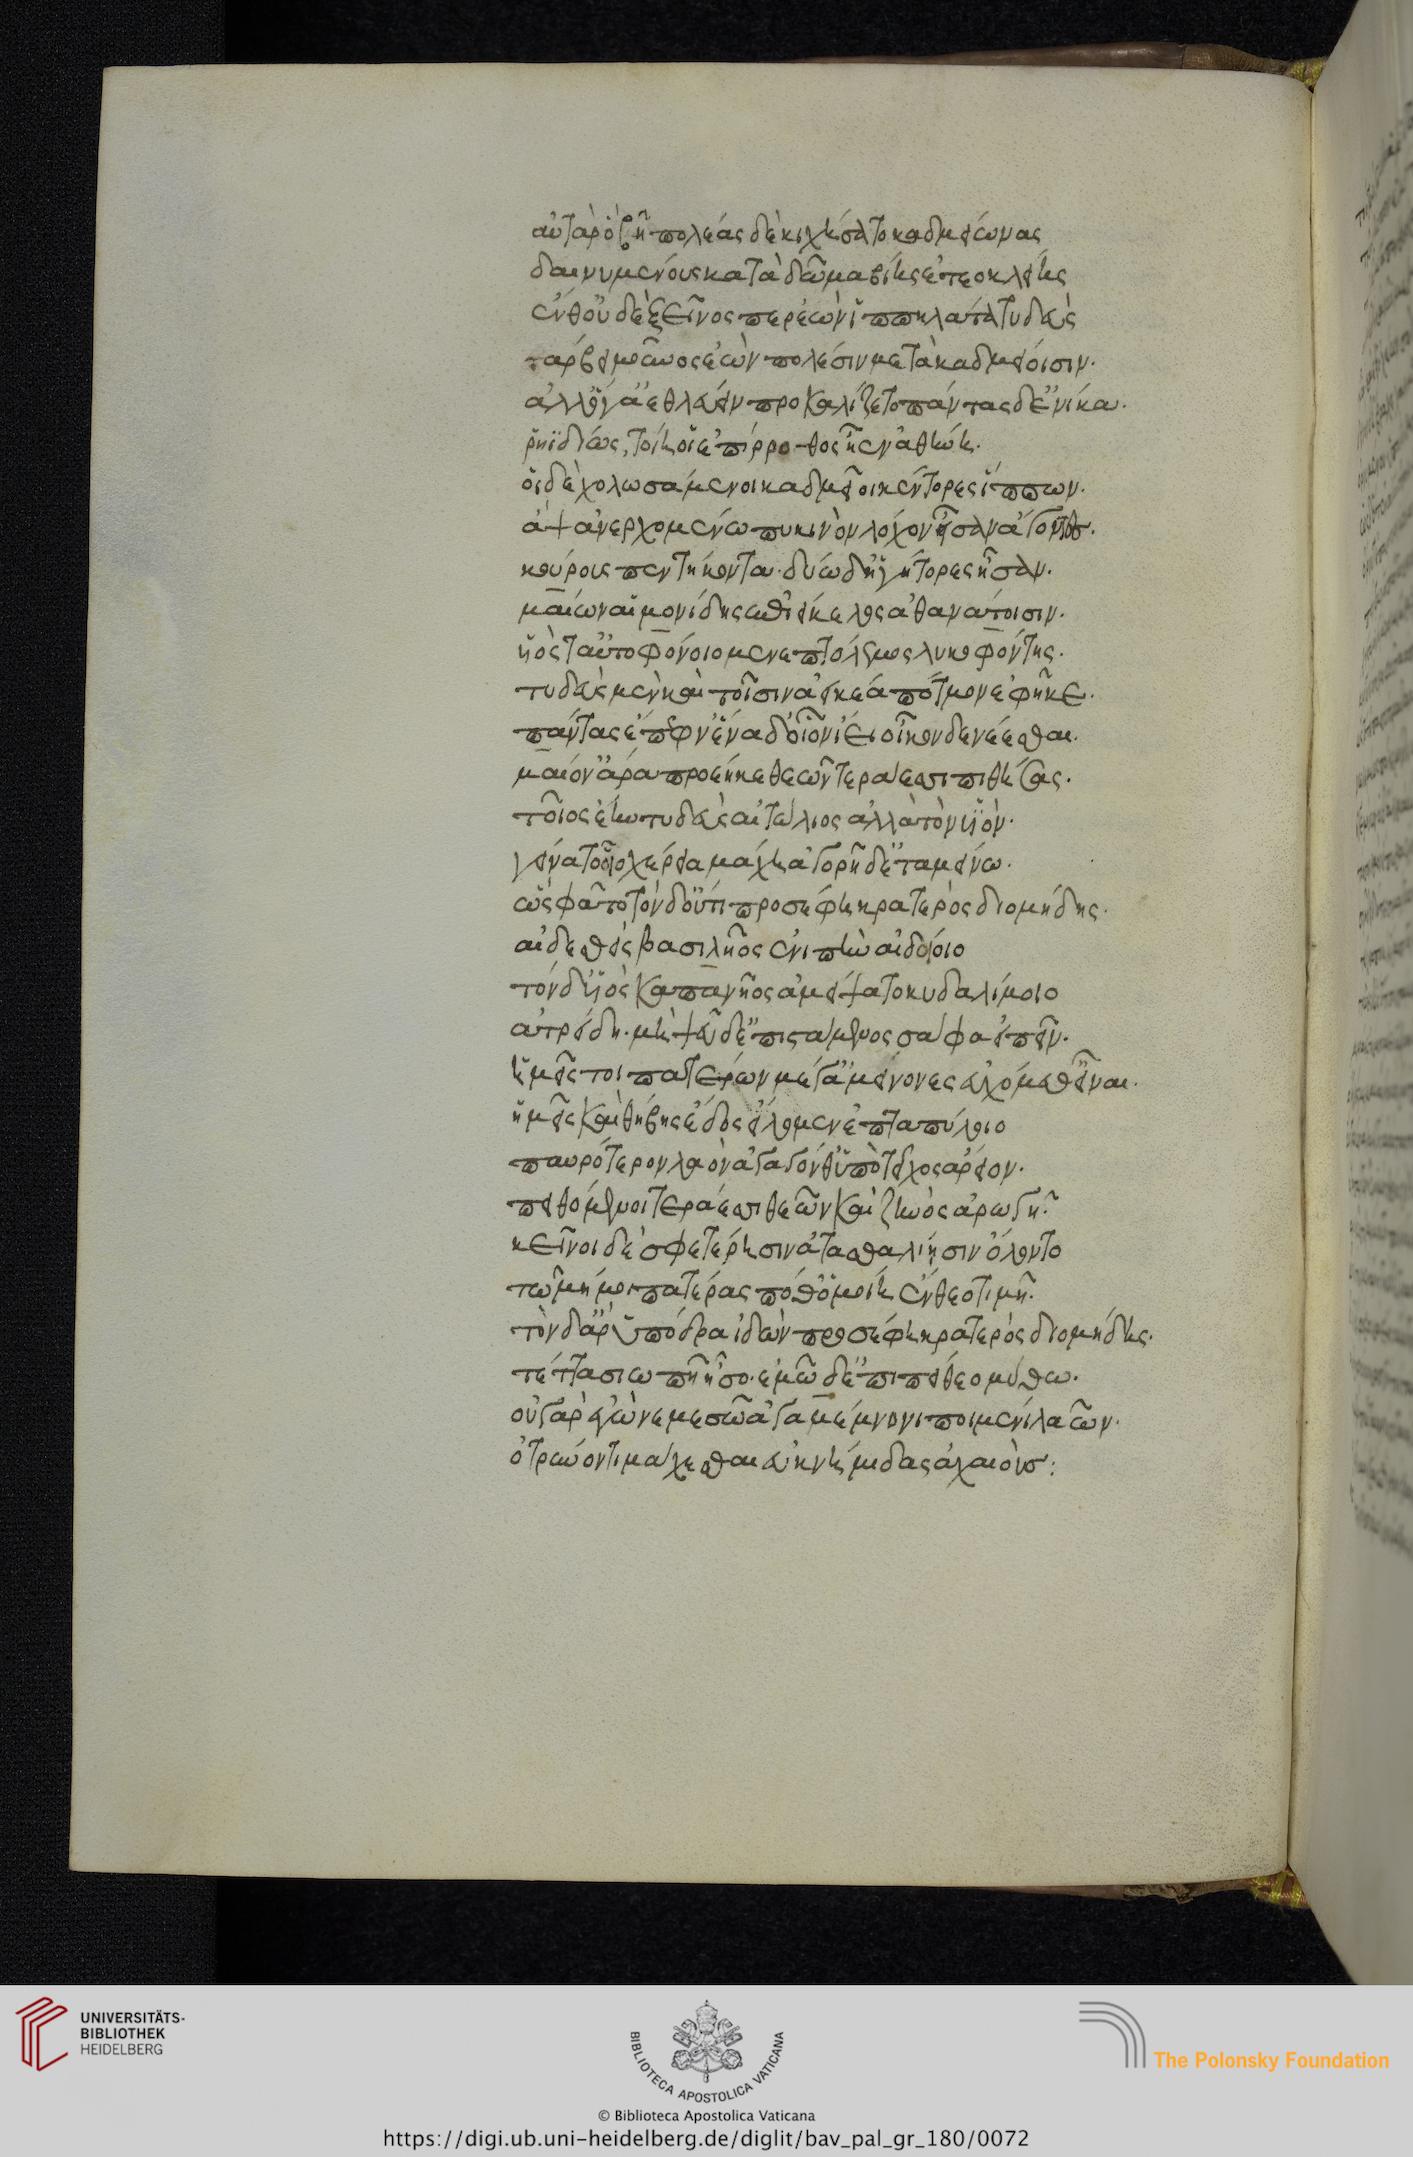 αὐτὰρ ὃ βῆ πολέας δὲ κιχήσατο καδμείωνας
δαινυμένους κατὰ δῶμα βίης ἐτεοκλείης
ἔνθ' οὐδὲ ξεῖνος περ ἐὼν ἱππηλάτα τυδεὺς
τάρβει μοῦνος ἐὼν πολέσιν μετὰ καδμείοισιν.
ἀλλ' ὅγ' ἀεθλεύειν προκαλίζετο πάντας δ' ἐνίκα.
ῥηϊδίως, τοίη οἱ ἐπίρροθος ἦεν ἀθήνη.
οἱ δὲ χολωσάμενοι καδμεῖοι κέντορες ἵππων.
ἂψ ἀνερχομένω πυκινὸν λόχον εἷσαν ἄγοντες.
κούρους πεντήκοντα. δύω δ' ἡγήτορες ἦσαν.
μαίων αἱμονίδης ἐπιείκελος ἀθανάτοισιν.
υἱός τ' αὐτοφόνοιο μενεπτόλεμος λυκοφόντης.
τυδεὺς μὲν καὶ τοῖσιν ἀεικέα πότμον ἐφῆκε.
πάντας ἔπεφν' ἕνα δ' οἶον ἵει οἶκον δε νέεσθαι.
μαίον' ἄρα προέηκε θεῶν τεράεσσι πιθήσας.
τοῖος ἔην τυδεὺς αἰτώλιος ἀλλὰ τὸν υἱὸν.
γείνατο εἷο χέρεια μάχη ἀγορῇ δέ τ' ἀμείνω.
ὣς φάτο τὸν δ' οὔτι προσέφη κρατερὸς διομήδης.
αἰδεσθεὶς βασιλῆος ἐνιπὴν αἰδοίοιο
τὸν δ' υἱὸς καπανῆος ἀμείψατο κυδαλίμοιο
ἀτρείδη. μὴ ψεύδε' ἐπιστάμενος σάφα εἰπεῖν.
ἡμεῖς τοι πατέρων μέγ' ἀμείνονες εὐχόμεθ' εἶναι.
ἡμεῖς καὶ θήβης ἕδος εἵλομεν ἑπταπύλοιο
παυρότερον λαὸν ἀγαγόνθ' ὑπὸ τεῖχος ἄρειον.
πειθόμενοι τεράεσσι θεῶν καὶ ζηνὸς ἀρωγῆ.
κεῖνοι δὲ σφετέρησιν ἀτασθαλίησιν ὄλοντο
τῶ μή μοι πατέρας ποθ' ὁμοίη ἔνθεο τιμῆ.
τὸν δ' ἄρ' ὑπόδρα ἰδὼν προσέφη κρατερὸς διομήδης.
τέττα σιωπῆ ἧσο. ἐμῶ δ' ἐπιπείθεο μύθω.
οὐ γὰρ ἐγὼ νεμεσῶ ἀγαμέμνονι ποιμένι λαῶν.
ὀτρύνοντι μάχεσθαι ἐϋκνήμιδας ἀχαιούς:
UNIVERSITÄTS-
BIBLIOTHEK
HEIDELBERG
BIBLIOTECA APOSTOLICA VATICANA
The Polonsky Foundation
© Biblioteca Apostolica Vaticana
https://digi.ub.uni-heidelberg.de/diglit/bav_pal_gr_180/0072